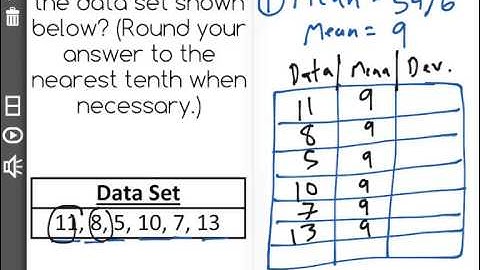 the data set shown
below? (Round your
answer to the
nearest tenth when
necessary.)
Data Set
11, 8, 5, 10, 7, 13
① Mean = 54/6
Mean = 9
Data Mean Dev.
11 9
8 9
5 9
10 9
7 9
13 9